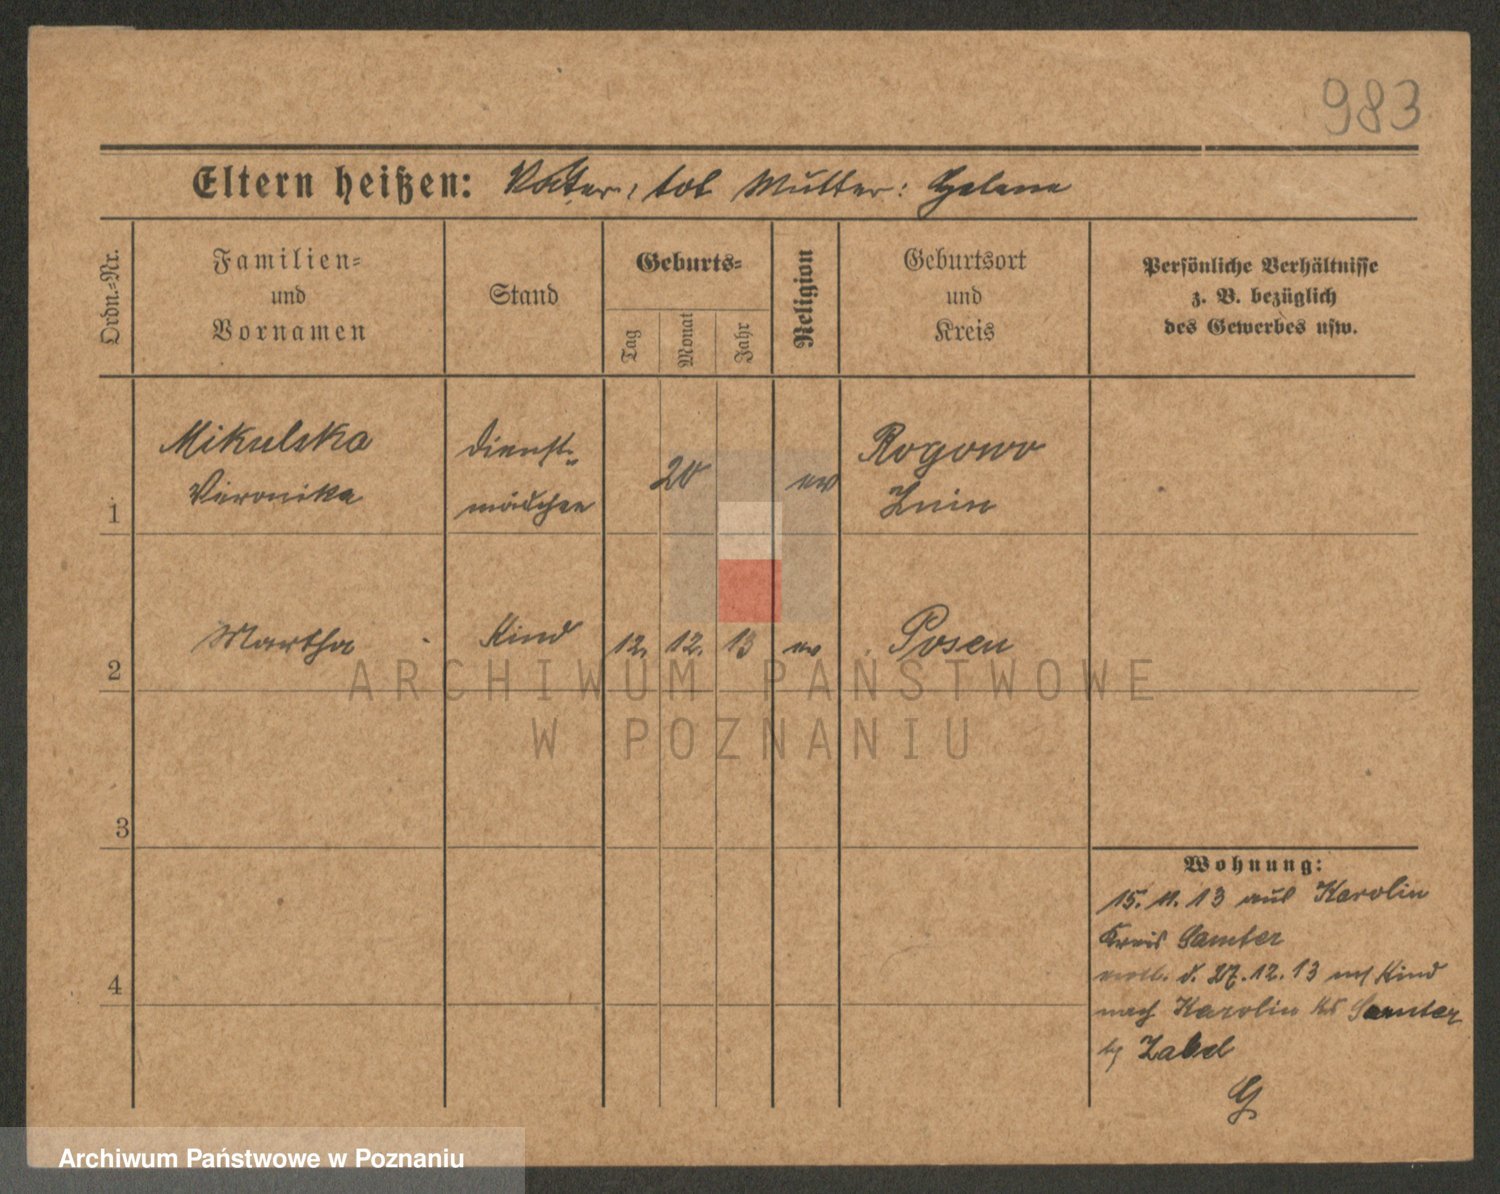 983
Eltern heißen: Vater, tot Mutter: Helene
Ordn.-Nr.
Familien-
und
Vornamen
Stand
Geburts-
Tag
Monat
Jahr
Religion
Geburtsort
und
Kreis
Persönliche Verhältnisse
z. B. bezüglich
des Gewerbes usw.
1
Mikulska
Veronika
Dienst-
mädchen
20
ev
Rogowo
Znin
2
Martha
Kind
12. 12. 13
ev
Posen
ARCHIWUM PAŃSTWOWE
W POZNANIU
3
4
Wohnung:
15. 11. 13 aus Karolin
Kreis Samter
d. 27.12.13 mit Kind
nach Karolin Ks Samter
bei Zabel
G
Archiwum Państwowe w Poznaniu